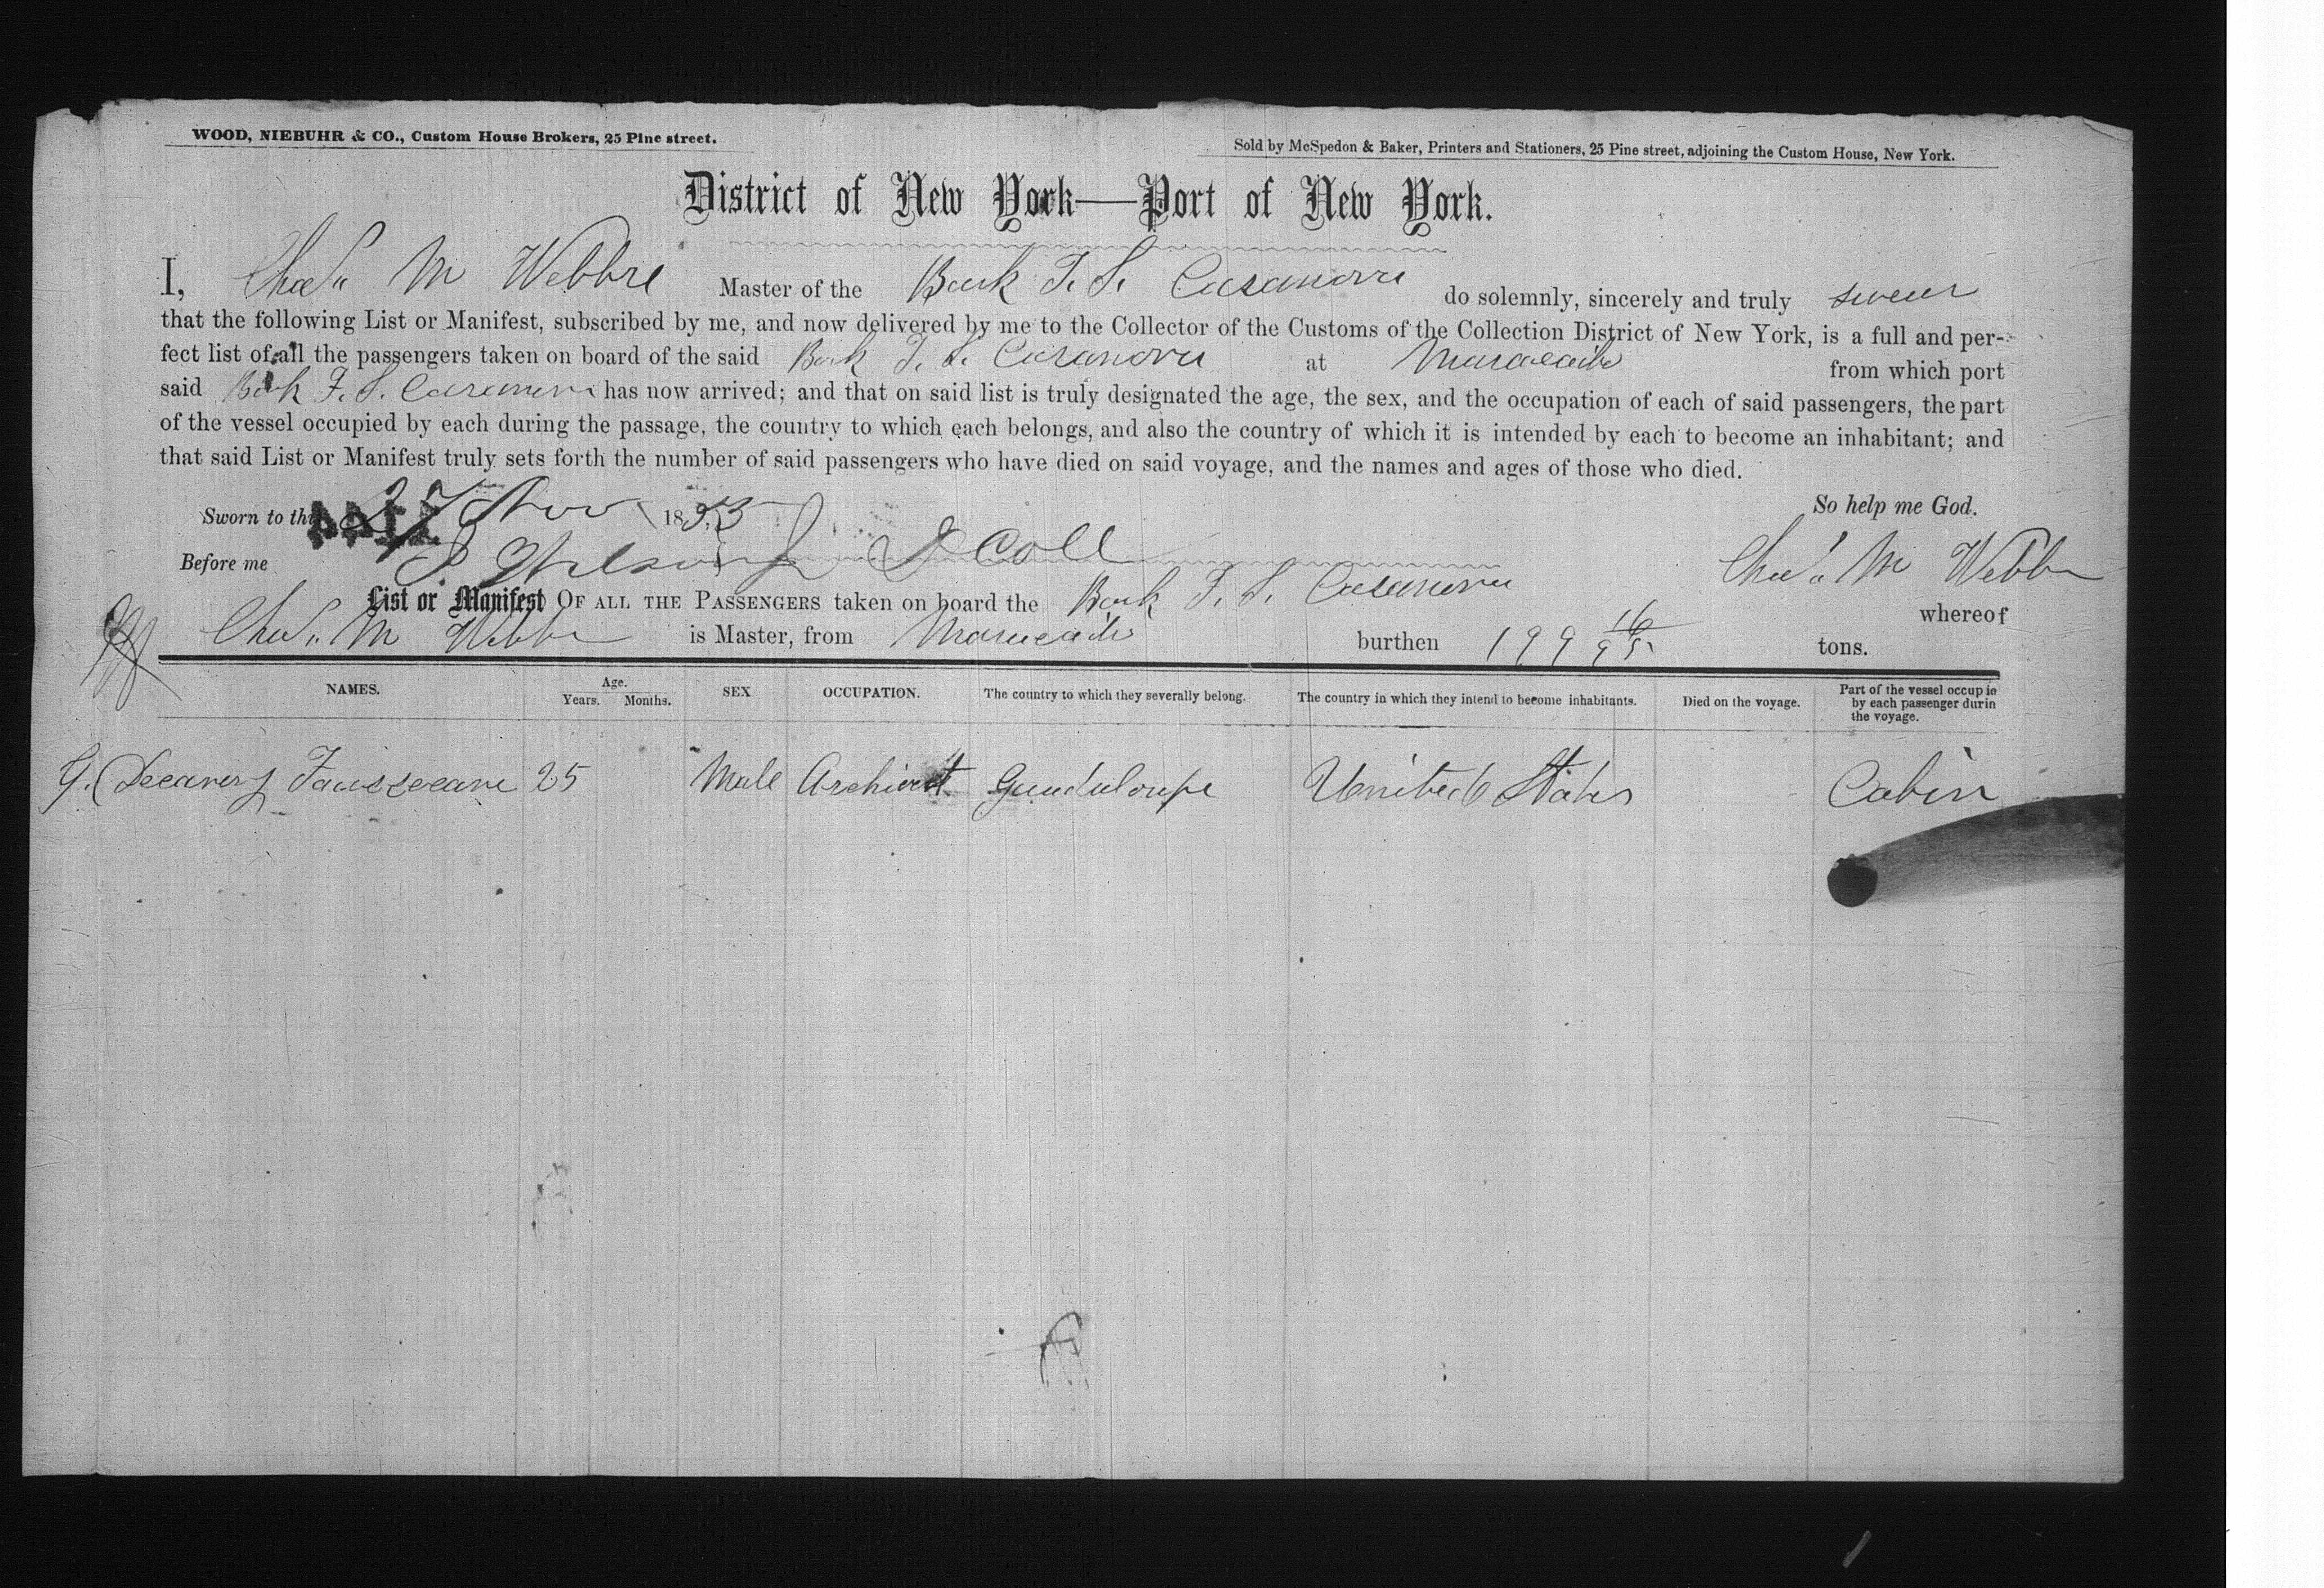 WOOD, NIEBUHR & CO., Custom House Brokers, 25 Pine street.
Sold by McSpedon & Baker, Printers and Stationers, 25 Pine street, adjoining the Custom House, New York.
District of New York—Port of New York.
I, Chas. M Webbre Master of the Bark F. S. Casanova do solemnly, sincerely and truly swear
that the following List or Manifest, subscribed by me, and now delivered by me to the Collector of the Customs of the Collection District of New York, is a full and per-
fect list of all the passengers taken on board of the said Bark F. S. Casanova at Maracaibo from which port
said Bark F. S. Casanova has now arrived; and that on said list is truly designated the age, the sex, and the occupation of each of said passengers, the part
of the vessel occupied by each during the passage, the country to which each belongs, and also the country of which it is intended by each to become an inhabitant; and
that said List or Manifest truly sets forth the number of said passengers who have died on said voyage, and the names and ages of those who died.
Sworn to this 27 Nov 1853 So help me God.
Before me D Coll Chas. M Webbe
List or Manifest OF ALL THE PASSENGERS taken on board the Bark F. S. Casanova whereof
Chas. M Webbe is Master, from Maracaibo burthen 199 16/95 tons.
NAMES. Age. Years. Months. SEX OCCUPATION. The country to which they severally belong. The country in which they intend to become inhabitants. Died on the voyage. Part of the vessel occup ie by each passenger durin the voyage.
25 Male Guadaloupe United States Cabin